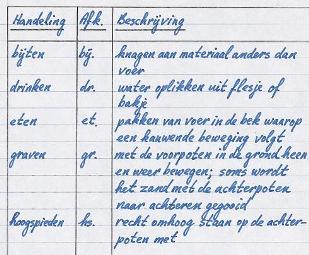 Handeling Afk. Beschrijving
bijten bij. knagen aan materiaal anders dan
voer
drinken dr. water oplikken uit flesje of
bakje
eten et. pakken van voer in de bek waarop
een kauwende beweging volgt
graven gr. met de voorpoten in de grond heen
en weer bewegen; soms wordt
het zand met de achterpoten
naar achteren gegooid
hoogspieden hs. recht omhoog staan op de achter-
poten met